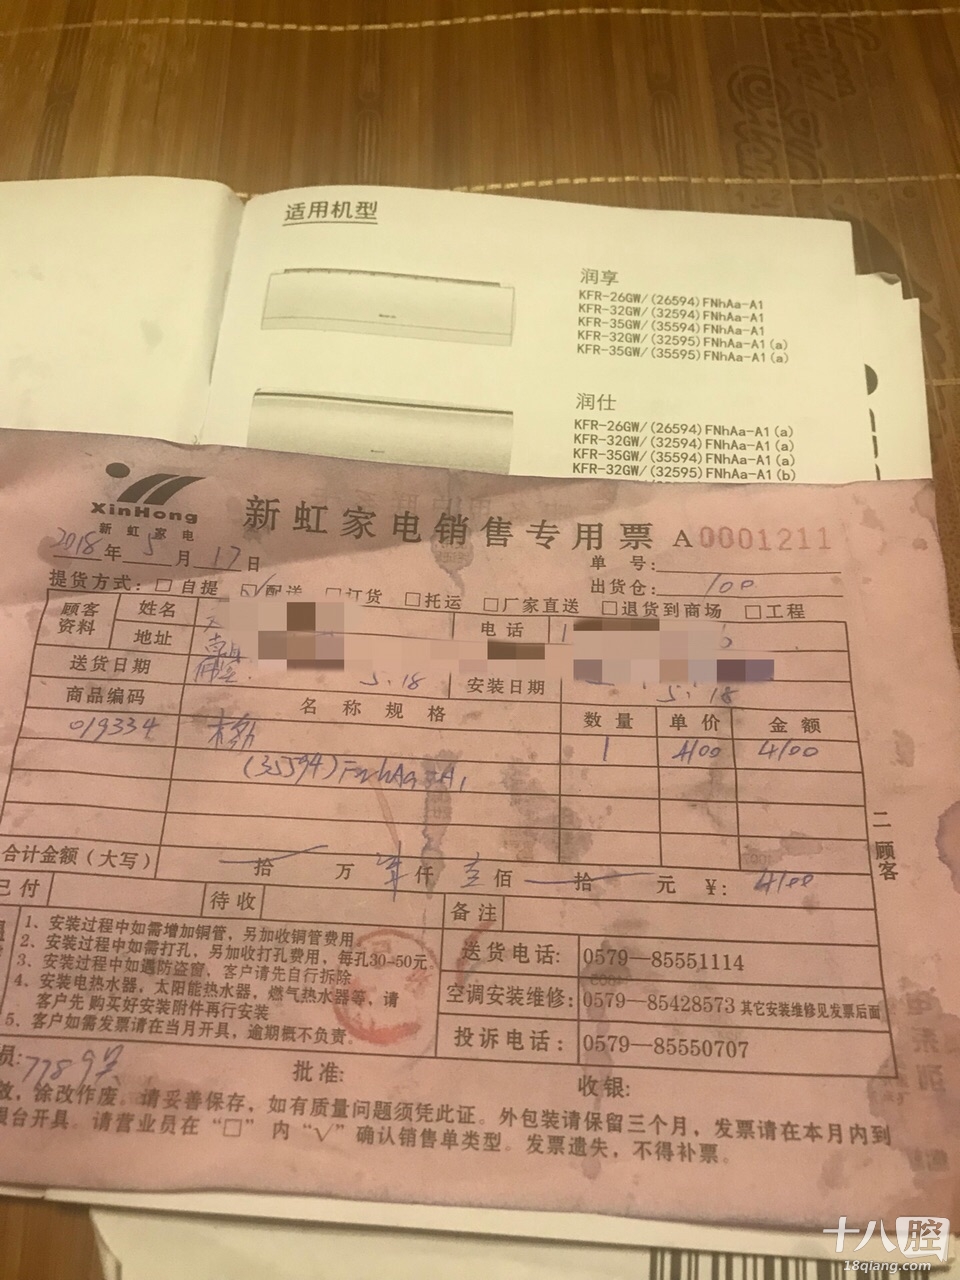 适用机型
润享
KFR-26GW/(26594)FNhAa-A1
KFR-32GW/(32594)FNhAa-A1
KFR-35GW/(35594)FNhAa-A1
KFR-32GW/(32595)FNhAa-A1(a)
KFR-35GW/(35595)FNhAa-A1(a)
润仕
KFR-26GW/(26594)FNhAa-A1(a)
KFR-32GW/(32594)FNhAa-A1(a)
KFR-35GW/(35594)FNhAa-A1(a)
KFR-32GW/(32595)FNhAa-A1(b)
XinHong
新虹家电
新虹家电销售专用票 A0001211
2018年5月17日
单号:
提货方式: □自提 ☑配送 □订货 □托运 □厂家直送 □退货到商场 □工程
出货仓: 100
顾客资料 姓名 电话
地址
送货日期 5.18 安装日期 5.18
商品编码 名称规格 数量 单价 金额
019334 格力 1 4100 4100
(35594)FnhAa-A1
合计金额(大写) 拾 万 仟 壹佰 拾 元 ¥: 4100
二顾客
已付 待收 备注
1、安装过程中如需增加铜管，另加收铜管费用
2、安装过程中如需打孔，另加收打孔费用，每孔30-50元。
3、安装过程中如遇防盗窗、客户请先自行拆除
4、安装电热水器，太阳能热水器，燃气热水器等，请
客户先 购买好安装附件再行安装
5、客户如需发票请在当月开具，逾期概不负责。
送货电话: 0579—85551114
空调安装维修: 0579—85428573 其它安装维修见发票后面
投诉电话: 0579—85550707
员: 778 9 批准: 收银:
效，涂改作废。请妥善保存，如有质量问题须凭此证。外包装请保留三个月，发票请在本月内到
银台开具。请营业员在“□”内“√”确认销售单类型。发票遗失，不得补票。
十八腔
18qiang.com